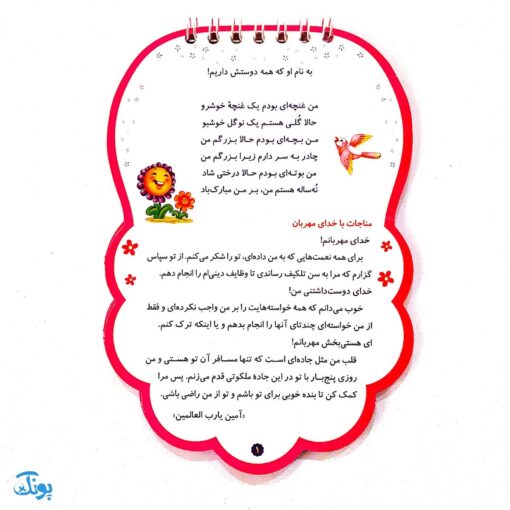 به نام او که همه دوستش داریم!
من غنچه‌ای بودم یک غنچهٔ خوشرو
حالا گُلـی هستـم یک نوگل خوشبو
مـن بچـه‌ای بـودم حالـا بـزرگم من
چادر به سر دارم زیـرا بـزرگم من
من بوتـه‌ای بـودم حالا درختی شاد
نُه‌ساله هستم من، بر من مبارک‌باد
مناجات با خدای مهربان
خدای مهربانم!
برای همه نعمت‌هایی که به من داده‌ای، تو را شکر می‌کنم. از تو سپاس
گزارم که مرا به سن تلکیف رساندی تا وظایف دینی‌ام را انجام دهم.
خدای دوست‌داشتنی من!
خوب می‌دانم که همهٔ خواسته‌هایت را بر من واجب نکرده‌ای و فقط
از من خواسته‌ای چندتای آنها را انجام بدهم و یا اینکه ترک کنم.
ای هستی‌بخش مهربانم!
قلب من مثل جاده‌ای است که تنها مسافر آن تو هستـی و من
روزی پنج‌بـار با تو در این جادهٔ ملکوتی قدم می‌زنم. پس مرا
کمک کن تا بنده خوبی برای تو باشم و تو از من راضی باشی.
«آمین یارب العالمین»
۱
پونک